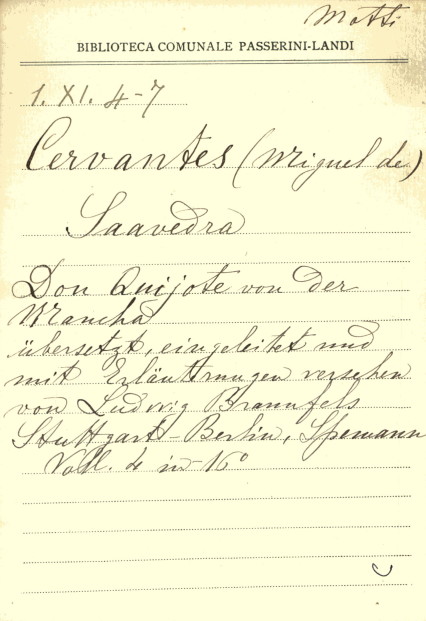 Motti
BIBLIOTECA COMUNALE PASSERINI-LANDI
1. XI. 4-7
Cervantes (Miguel de)
Saavedra
Don Quijote von der
Mancha
übersetzt, eingeleitet und
mit Erläutrnugen versehen
von Ludwig Braunfels
Stuttgart-Berlin, Spemann
Voll. 4 in-16°